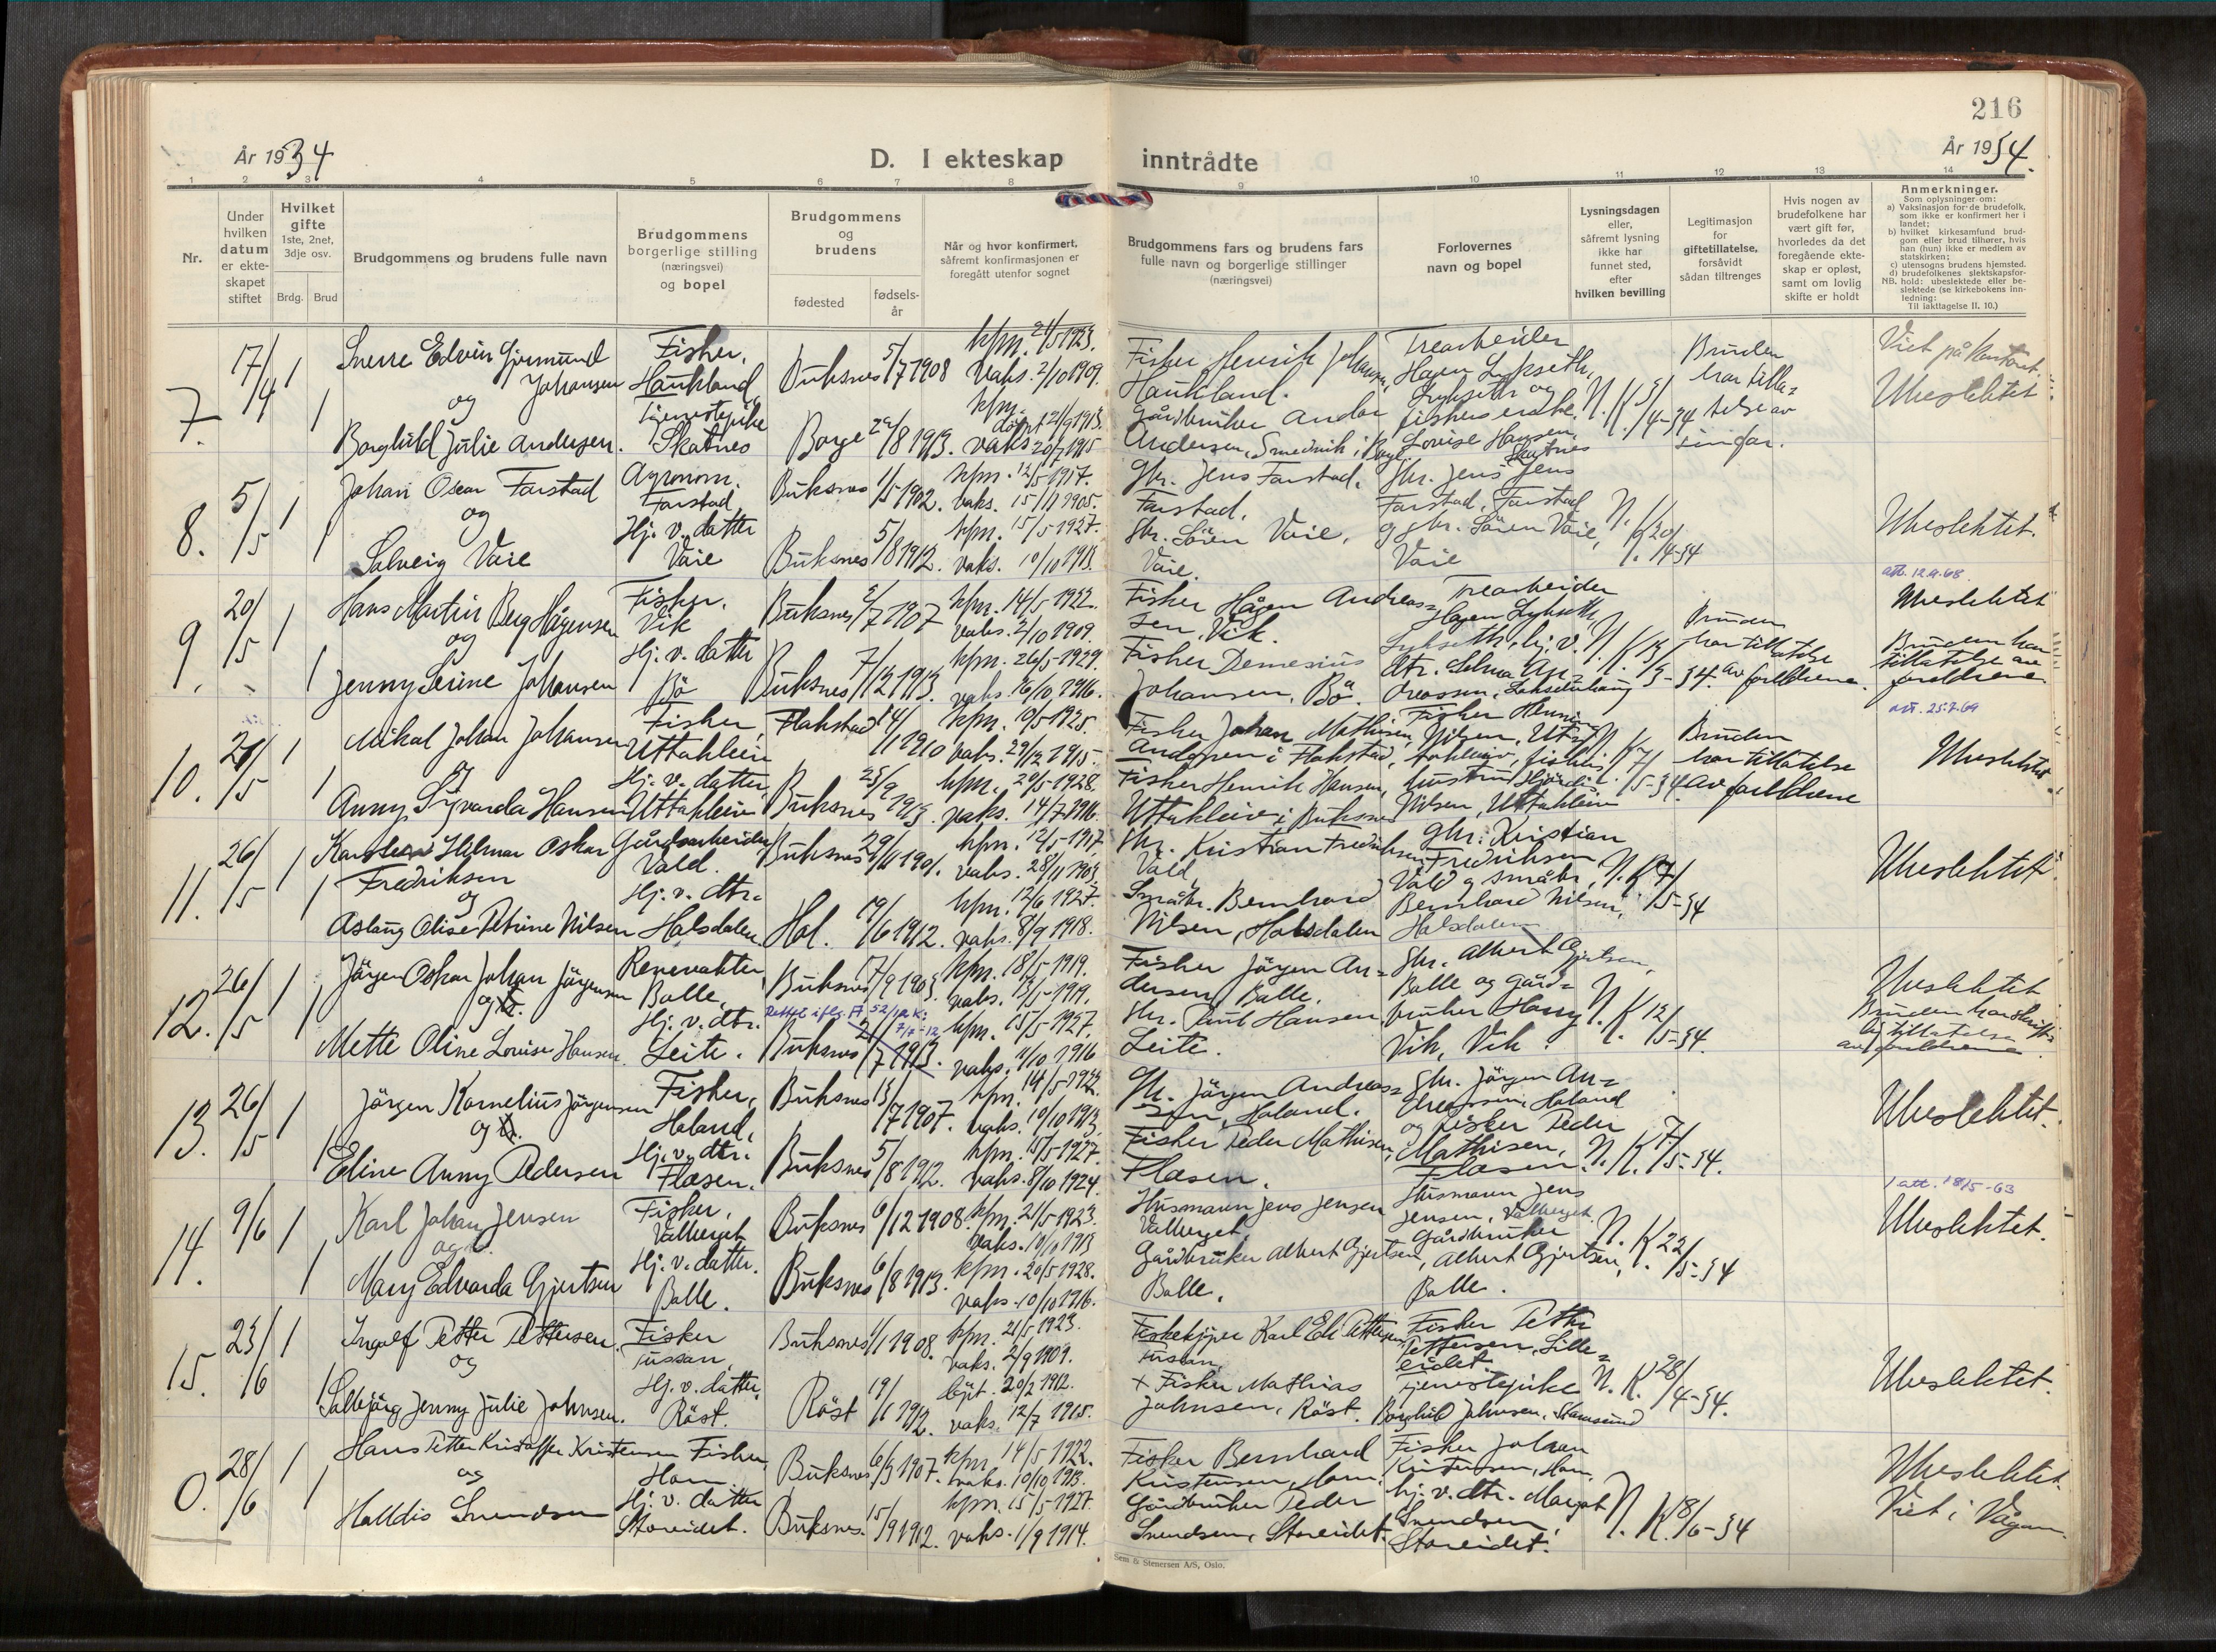 216
År 1934
D. I ekteskap inntrådte
År 1934.
1 2 3 4 5 6 7 8 9 10 11 12 13 14
Nr.
Under
hvilken
datum
er ekte-
skapet
stiftet
Hvilket
gifte
1ste, 2net,
3dje osv.
Brdg. Brud
Brudgommens og brudens fulle navn
Brudgommens
borgerlige stilling
(næringsvei)
og bopel
Brudgommens
og
brudens
fødested
fødsels-
år
Når og hvor konfirmert,
såfremt konfirmasjonen er
foregått utenfor sognet
Brudgommens fars og brudens fars
fulle navn og borgerlige stillinger
(næringsvei)
Forlovernes
navn og bopel
Lysningsdagen
eller,
såfremt lysning
ikke har
funnet sted,
efter
hvilken bevilling
Legitimasjon
for
giftetillatelse,
forsåvidt
sådan tiltrenges
Hvis nogen av
brudefolkene har
vært gift før,
hvorledes da det
foregående ekte-
skap er opløst,
samt om lovlig
skifte er holdt
Anmerkninger.
Som oplysninger om:
a) Vaksinasjon for de brudefolk,
som ikke er konfirmert her i
landet;
b) hvilket kirkesamfund brud-
gom eller brud tilhører, hvis
han (hun) ikke er medlem av
statskirken;
c) utensogns brudens hjemsted.
d) brudefolkenes slektskapsfor-
NB. hold: ubeslektede eller be-
slektede (se kirkebokens inn-
ledning:
Til iakttagelse II. 10.)
7.
17/4
1
1
Sverre Edvin Gjermund
Johansen
og
Borghild Julie Andersen.
Fisker,
Haukland
Tjenestepike
Skatnes
Buksnes 5/7 1908
Borge 22/8 1913.
kfm. 21/5 1923.
Vaks. 2/10 1909.
kfm.
døpt 21/9 1913.
vaks 20/7 1915
Fisker Henrik Johansen,
Haukland.
Gårdbruker Andor
Andersen, Smedvik i Borge.
Trearbeider
Hagen Lykseth,
Lykseth og
fiskers enke
Lovise Hansen,
Skatnes
N. K. 5/4-34
Bruden
har tilla-
telse av
sin far.
Viet på kontoret.
Ubeslektet
8.
5/5
1
1
Johan Oscar Farstad
og
Solveig Vaie
Agronom.
Farstad
Hj. v. datter
Vaie
Buksnes 1/5 1902.
Buksnes 5/8 1912.
kfm. 12/5 1917.
vaks. 15/11 1905.
kfm. 15/5 1927.
vaks. 10/10 1913.
Gbr. Jens Farstad,
Farstad.
Gbr. Sören Vaie,
Vaie.
Gbr. Jens Jens
Farstad, Farstad
og gbr. Sören Vaie,
Vaie
N. K. 20/4-34
Ubeslektet.
9.
20/5
1
1
Hans Martin Berg Hågensen
og
Jenny Serine Johansen
Fisker.
Vik
Hj. v. datter
Bö
Buksnes 2/7 1907
Buksnes 7/12 1913.
kfm. 14/5 1922.
vaks. 2/10 1909.
kfm. 26/5 1929.
vaks. 16/10 1916.
Fisker Hågen Andreas-
sen, Vik.
Fisker Demesius
Johansen, Bö.
Trearbeider
Hagen Lykseth,
Lykseth, hj. v.
dtr. Selma An-
dreassen,
N. K. 13/3-34.
Bruden
har tillatelse
av foreldrene.
att. 12.9.68
Ubeslektet
Bruden har
tillatelse av
foreldrene
att. 25.7.69
10.
21/5
1
1
Mikal Johan Johansen
og
Anny Sigvarda Hansen
Fisker,
Uttakleiv
Hj. v. datter,
Uttakleiv
Flakstad 14/11 1910
Buksnes 25/9 1913.
kfm. 10/5 1925.
vaks. 29/12 1915.
kfm. 20/5-1928.
vaks. 14/7 1916.
Fisker Johan Mathisen,
Andopen i Flakstad,
Fisker Henrik Hansen,
Uttakleiv i Buksnes
Fisker Henning
Nilsen, Utt-
akleiv, fiskers
hustru Hjördis
Nilsen, Uttakleiv
N. K. 7/5-34
Bruden
har tillatelse
av foreldrene
Ubeslektet
11.
26/5
1
1
Karsten Hilmar Oskar
Fredriksen
og
Aslaug Olise Petrine Nilsen
Gårdsarbeider,
Vald.
Hj. v. dtr.
Holsdalen
Buksnes 29/11 1901.
Hol. 19/6 1912.
kfm. 12/5-1917.
vaks. 28/11 1903.
kfm. 12/6 1927.
vaks. 8/9 1918.
Gbr. Kristian Fredriksen
Vald,
Småbr. Bernhard
Nilsen, Holsdalen
Gbr. Kristian
Fredriksen
Vald og småbr.
Bernhard Nilsen,
Holsdalen
N. K. 7/5-34
Ubeslektet.
12.
26/5
1
1
Jörgen Oskar Johan Jörgensen
og
Mette Oline Lovise Hansen
Balle,
Hj. v. dtr.
Leite.
Buksnes 17/9 1903.
Buksnes 2/7 1913.
7/7-12
kfm. 18/5-1919.
vaks. 13/5-1919.
kfm. 15/5-1927.
vaks. 11/10 1916
Fisker Jörgen An-
dersen, Balle.
Gbr. Paul Hansen
Leite.
Gbr. Albert Gjertsen,
Balle og gård-
bruker Harry
Vik, Vik.
N. K. 12/5-34.
Ubeslektet
Bruden har skrift-
lig tillatelse
av foreldrene
13.
26/5
1
1
Jörgen Kornelius Jörgensen
og
Eline Anny Pedersen
Fisker,
Holand,
Hj. v. dtr.
Flæsen.
Buksnes 13/7 1907.
Buksnes 5/8 1912.
kfm. 14/5 1922.
vaks. 10/10 1913.
kfm. 15/5-1927.
vaks. 8/10 1924.
Gbr. Jörgen Andreas-
sen, Holand.
Fisker Peder Mathisen,
Flæsen.
Gbr. Jörgen An-
dreassen, Holand
og fisker Peder
Mathisen,
Flæsen.
N. K. 7/5-34.
Ubeslektet.
14.
9/6
1
1
Karl Johan Jensen
og
Mary Edvarda Gjertsen
Fisker,
Valberget
Hj. v. datter.
Balle.
Buksnes 6/12 1908.
Buksnes 6/8 1913.
kfm. 21/5 1923.
vaks. 10/10 1913
kfm. 20/5 1928.
vaks. 10/10 1916.
Husmann Jens Jensen
Valberget.
Gårdbruker Albert Gjertsen,
Balle.
Husmann Jens
Jensen, Valberget.
Gårdbruker
Albert Gjertsen,
Balle.
N. K. 22/5-34
1 att. 18/5-63
Ubeslektet.
15.
23/6
1
1
Ingolf Petter Pettersen.
og
Solbjörg Jenny Julie Johnsen.
Fisker
Jussan,
Hj. v. datter.
Röst.
Buksnes 1/1 1908.
Röst 19/1 1912.
kfm. 21/5 1923.
vaks. 2/9 1909.
20/2 1912.
vaks. 12/7 1915.
Karl Edv. Pettersen
+ Fisker Mathias
Johnsen, Röst.
Fisker Petter
Pettersen, Lille-
eidet.
Tjenestepike
Borghild Johnsen, Stamsund
N. K. 28/4-34.
Ubeslektet.
0.
28/6
1
1
Hans Petter Kristoffer Kristensen
og
Halldis Svendsen
Fisker,
Horn.
Hj. v. datter
Storeidet.
Buksnes 6/3 1907.
Buksnes. 15/9 1912.
kfm. 14/5 1922.
vaks. 10/10 1913.
kfm. 15/5-1927.
vaks. 1/9 1914.
Fisker Bernhard
Kristensen, Horn.
Gårdbruker Peder
Svendsen, Storeidet.
Fisker Johan
Kristensen, Horn.
hj. v. dtr. Margot
Svendsen
Storeidet.
N. K. 18/6-34
Ubeslektet.
Viet i Vågan.
Sem & Stenersen A/S, Oslo.